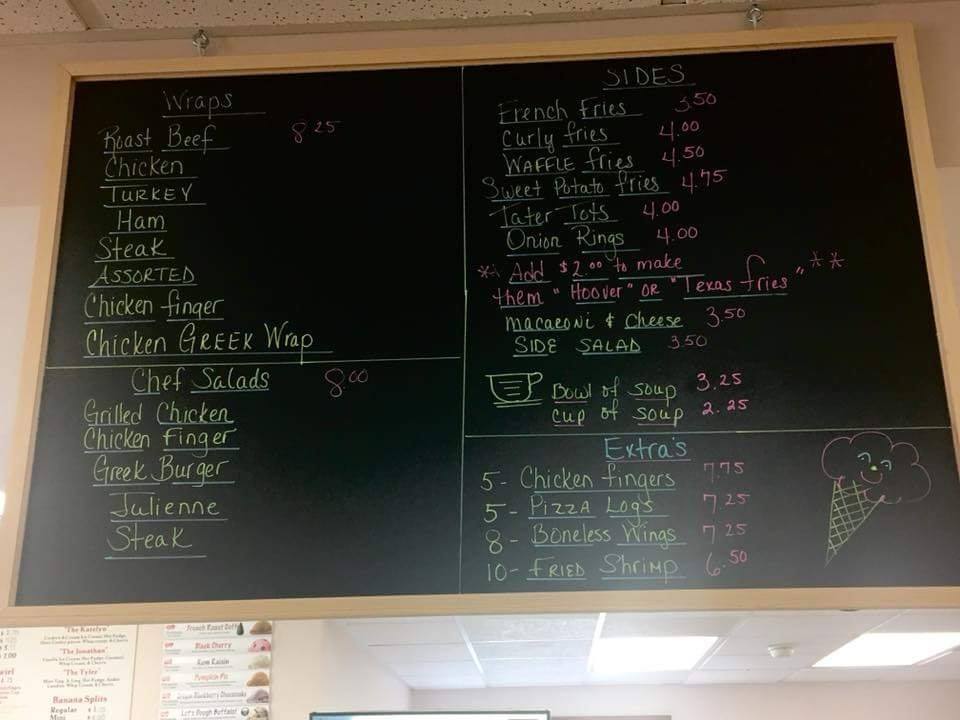 Wraps
Roast Beef 8.25
Chicken
TURKEY
Ham
Steak
ASSORTED
Chicken finger
Chicken GREEK Wrap
Chef Salads 8.00
Grilled Chicken
Chicken Finger
Greek Burger
Julienne
Steak
SIDES
French Fries 3.50
Curly fries 4.00
WAFFLE fries 4.50
Sweet Potato fries 4.75
Tater Tots 4.00
Onion Rings 4.00
** Add $2.00 to make
them "Hoover" OR "Texas fries" **
MACARONI & Cheese 3.50
SIDE SALAD 3.50
Bowl of soup 3.25
cup of soup 2.25
Extra's
5- Chicken fingers 7.75
5- PIZZA Logs 7.25
8- Boneless Wings 7.25
10- FRIED Shrimp 6.50
"The Katelyn"
"The Jonathan"
"The Tyler"
Banana Splits
Regular
Mini
Black Cherry
Rum Raisin
Pumpkin Pie
Let's Dough Buffalo!